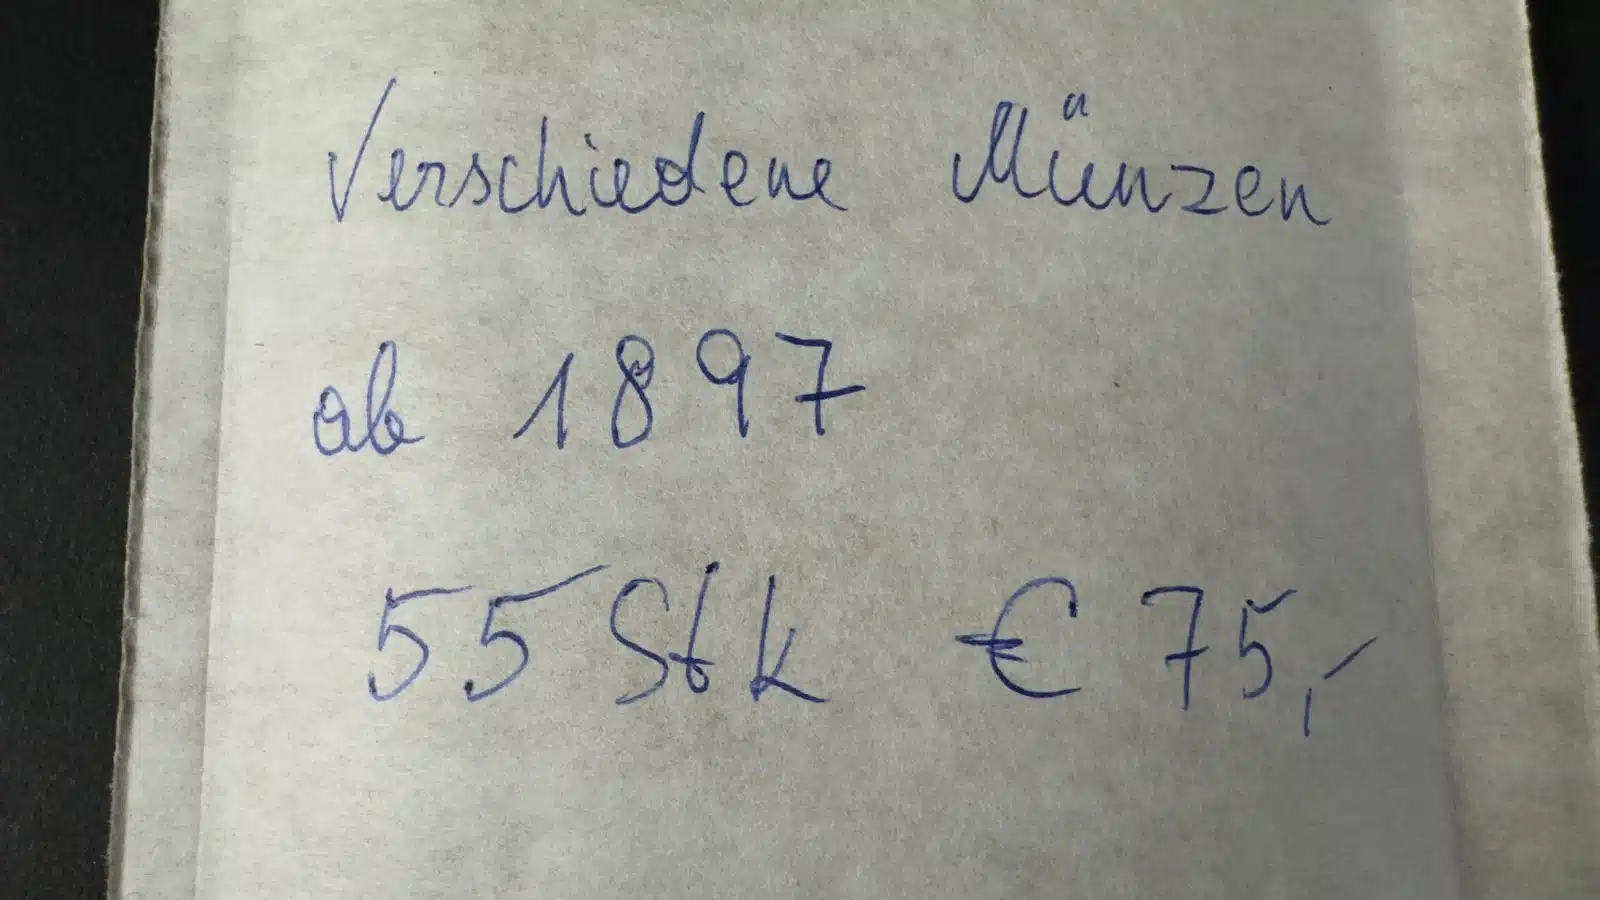 Verschiedene Münzen
ab 1897
55 Stk € 75,-